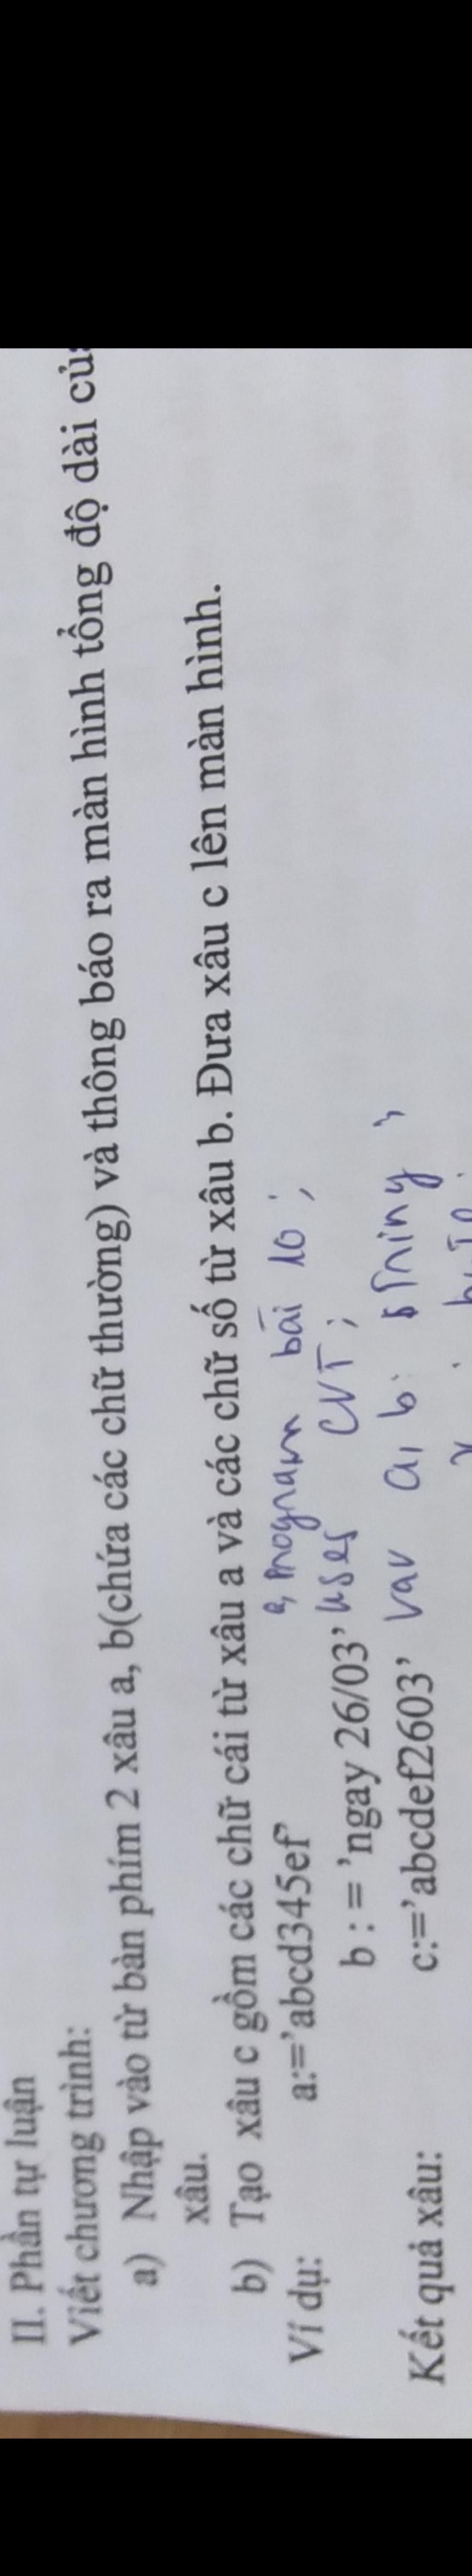 II. Phần tự luận
Viết chương trình:
a) Nhập vào từ bàn phím 2 xâu a, b(chứa các chữ thường) và thông báo ra màn hình tổng độ dài của
xâu.
b) Tạo xâu c gồm các chữ cái từ xâu a và các chữ số từ xâu b. Đưa xâu c lên màn hình.
a, Program bai 10 ;
Ví dụ: a:='abcd345ef'
b : = 'ngay 26/03' uses CRT ;
Kết quả xâu: c:='abcdef2603' var a, b : string ;